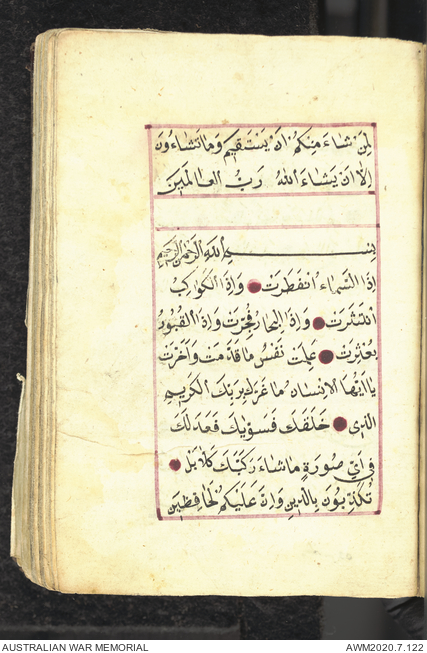 لِمَنْ شَاءَ مِنْكُمْ اَنْ يَسْتَقِيمَ وَمَا تَشَاءُونَ
اِلَّا اَنْ يَشَاءَ اللهُ رَبُّ الْعَالَمِينَ
بِسْــــمِ اللهِ الرَّحْمٰنِ الرَّحِيمِ
اِذَا السَّمَاءُ انْفَطَرَتْ وَاِذَا الْكَوَاكِبُ
انْتَثَرَتْ وَاِذَا الْبِحَارُ فُجِّرَتْ وَاِذَا الْقُبُورُ
بُعْثِرَتْ عَلِمَتْ نَفْسٌ مَا قَدَّمَتْ وَاَخَّرَتْ
يَا اَيُّهَا الْاِنْسَانُ مَا غَرَّكَ بِرَبِّكَ الْكَرِيمِ
الَّذِي خَلَقَكَ فَسَوّٰيكَ فَعَدَلَكَ
فِي اَيِّ صُورَةٍ مَا شَاءَ رَكَّبَكَ كَلَّا بَلْ
تُكَذِّبُونَ بِالدِّينِ وَاِنَّ عَلَيْكُمْ لَحَافِظِينَ
AUSTRALIAN WAR MEMORIAL
AWM2020.7.122